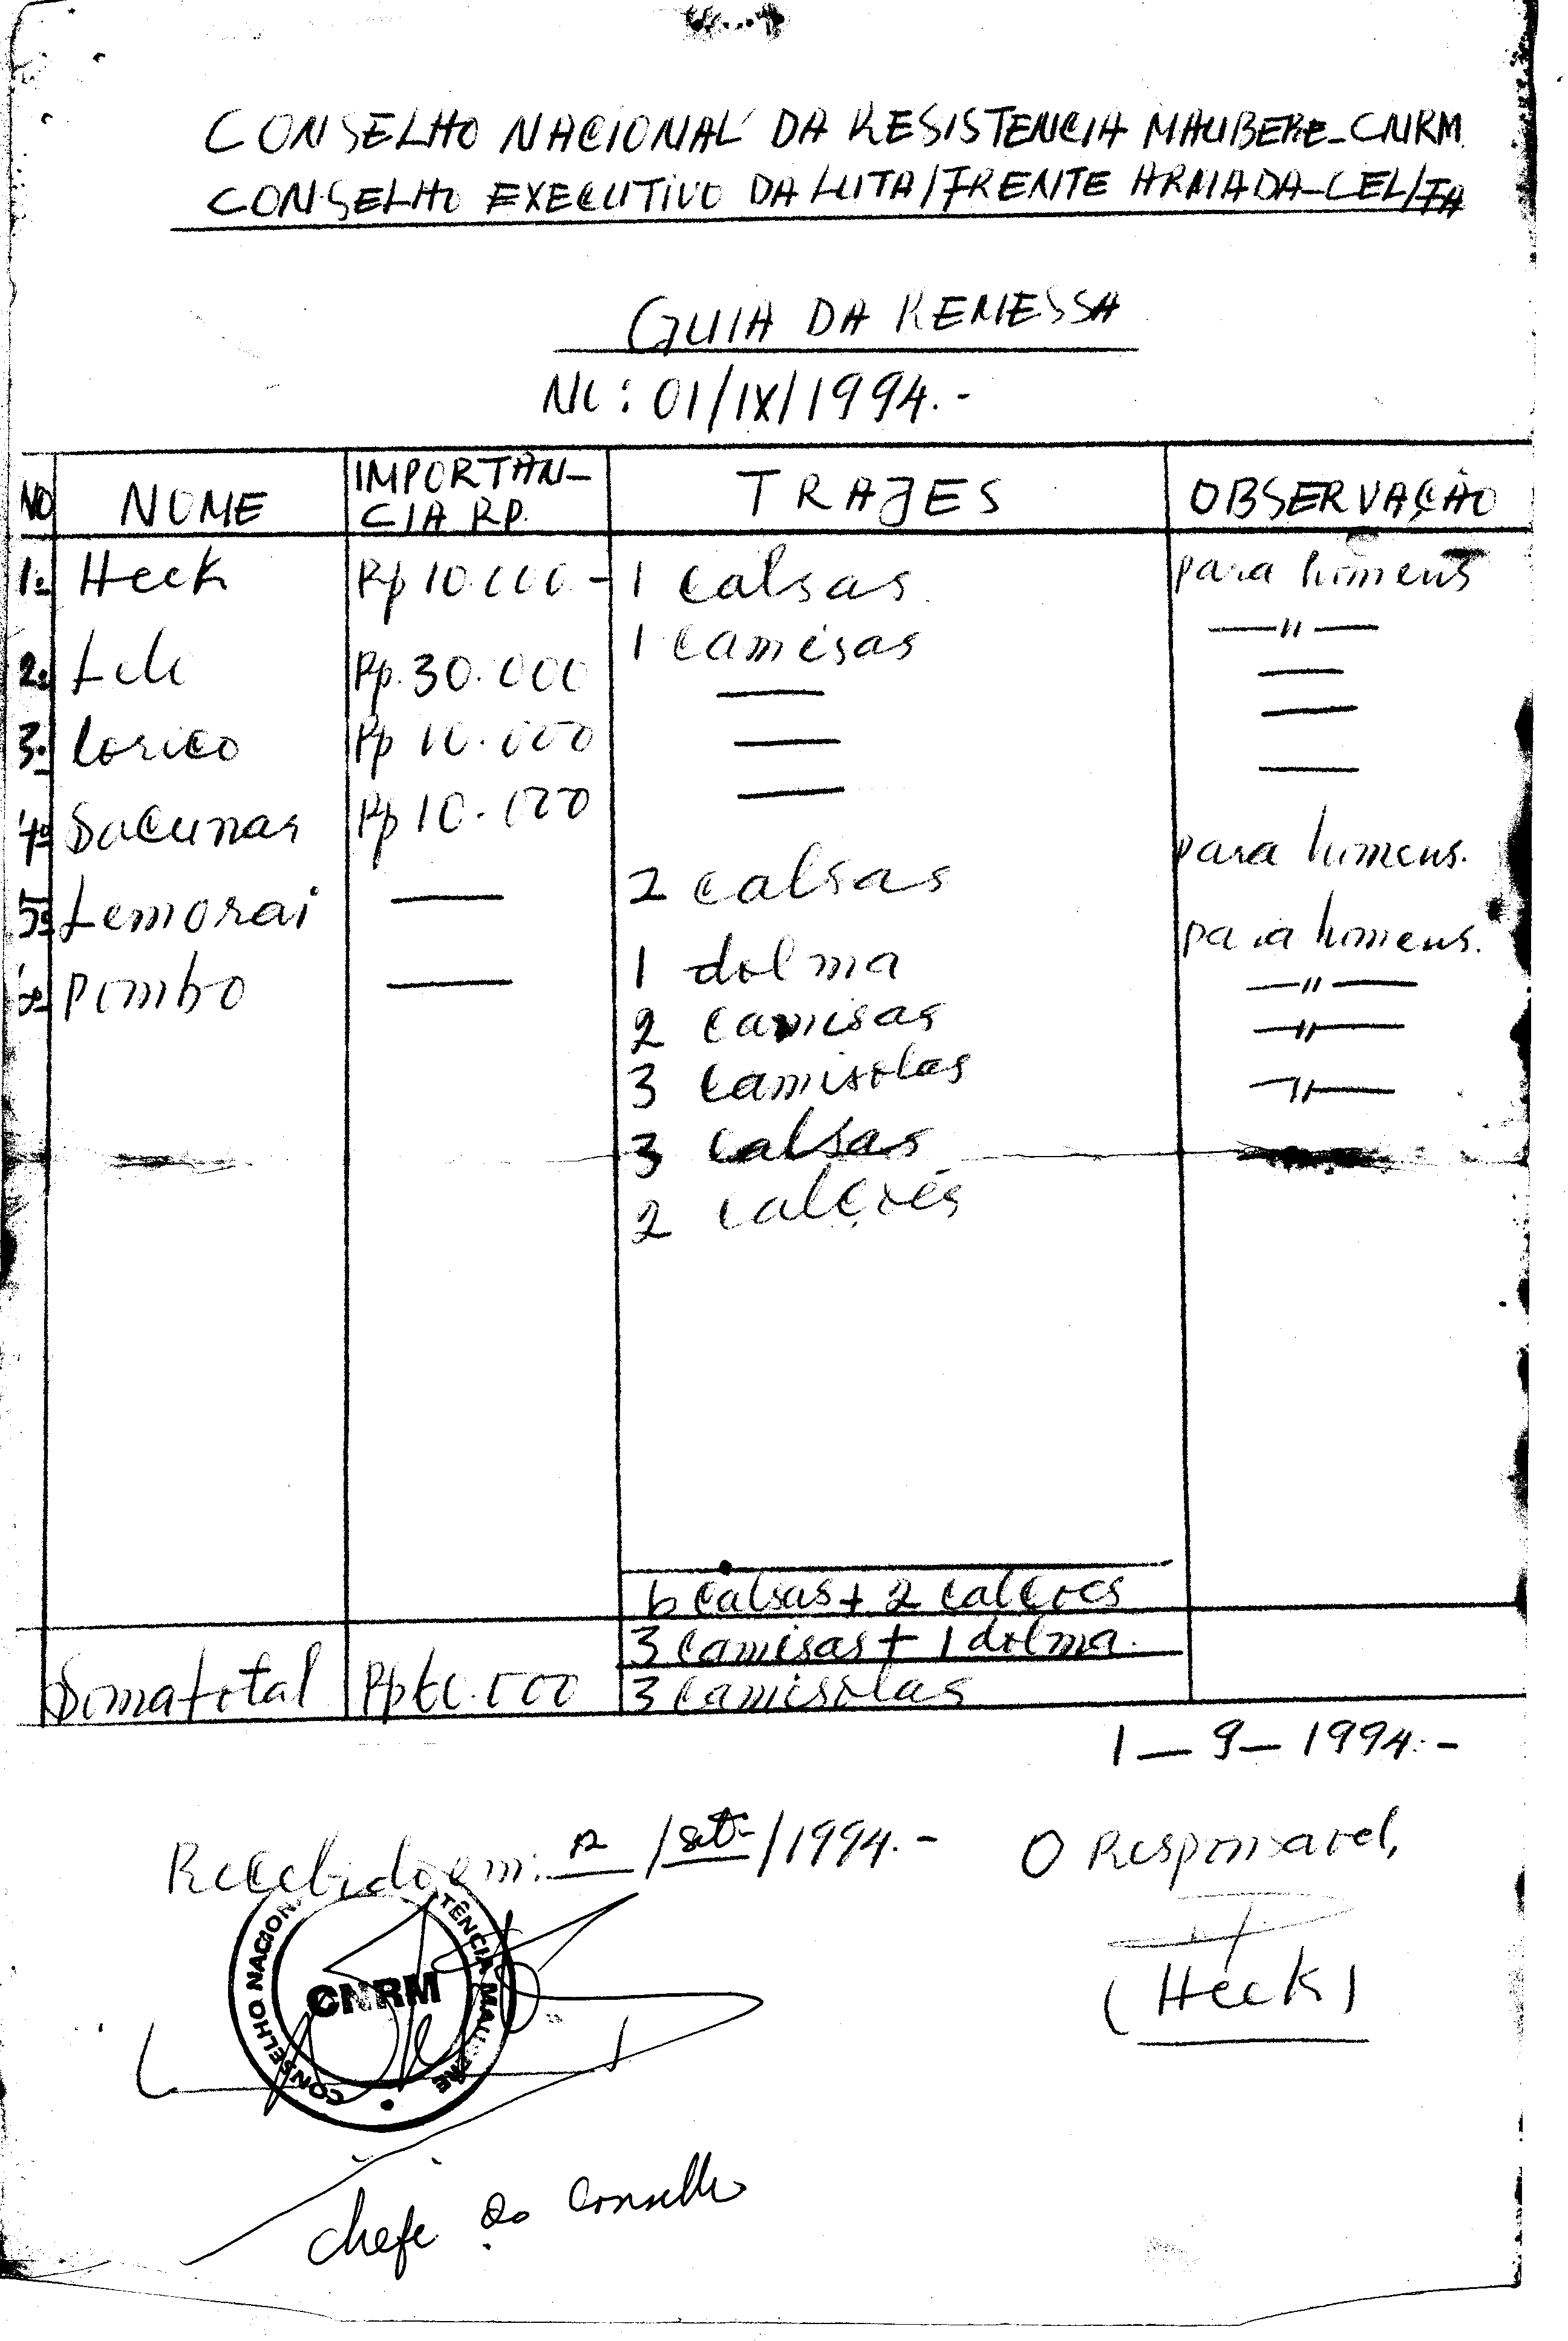 CONSELHO NACIONAL DA RESISTENCIA MAUBERE_CNRM.
CONSELHO EXECUTIVO DA LUTA/FRENTE ARMADA_CEL/FA
GUIA DA REMESSA
No: 01/IX/1994.-
NO NOME IMPORTÂN- CIA RP. TRAJES OBSERVAÇÃO
1º Heck Rp 10.000.- 1 calsas. para homens
1 camisas —"—
2º Lelo Rp. 30.000 — —
3º Lorico Rp 10.000 — —
4º Sacunas Rp 10.000 — —
5º Lemorai — 2 calsas para homens.
6º Pombo — 1 dolma para homens.
2 camisas —"—
3 camisolas —"—
3 calsas —"—
2 calções
6 calsas + 2 calções
3 camisas + 1 dolma.
Soma total Rp 60.000 3 camisolas
1 — 9 — 1994.-
Recebido em: 12 /set-/1994.- O Responsavel,
CONSELHO NACION TÊNCIA MAU ERE
CNRM
(Heck)
Chefe do Conselho